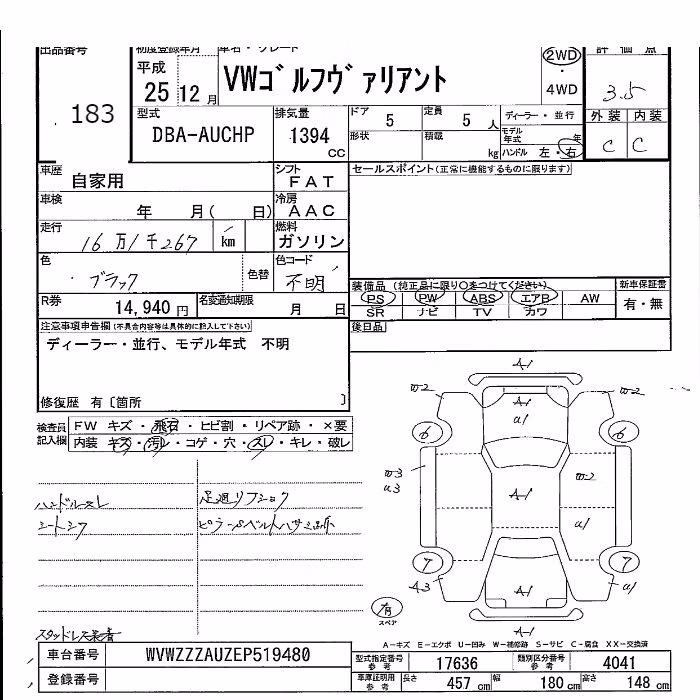 出品番号 初度登録年月 車名・グレード 評価点
183 平成 25 12月 VWゴルフヴァリアント 2WD・4WD 3.5
型式 DBA-AUCHP 排気量 1394 CC ドア 5 定員 5 人 ディーラー・並行 外装 内装
形状 積載 kg モデル年式 年 ハンドル 左・右 C C
車歴 自家用 シフト FAT セールスポイント(正常に機能するものに限ります)
車検 年 月( 日) 冷房 AAC
走行 16万1千267 km 燃料 ガソリン
色 ブラック 色替 色コード 不明 装備品 (純正品に限り○をつけてください) 新車保証書
PS PW ABS エアB AW 有・無
R券 14,940円 名変通知期限 月 日 SR ナビ TV カワ
注意事項申告欄(不具合内容等は具体的に記入して下さい) 後日品
ディーラー・並行、モデル年式 不明
修復歴 有〔箇所 〕
検査員記入欄 FW キズ・飛石・ヒビ割・リペア跡・×要
内装 キズ・汚レ・コゲ・穴・スレ・キレ・破レ
A-1
W-2 A-1 W-2
u1
6 6
W-3 W-2
u3 A-1
u1
7 7
A-3 A-1 u1
A-1
ハンドルスレ
シートシワ
有 スペア
スタッドレス装着
A-キズ E-エクボ U-凹み W-補修跡 S-サビ C-腐食 XX-交換済
車台番号 WVWZZZAUZEP519480 型式指定番号 参考 17636 類別区分番号 参考 4041
登録番号 車庫証明用 参考 長さ 457 cm 幅 180 cm 高さ 148 cm